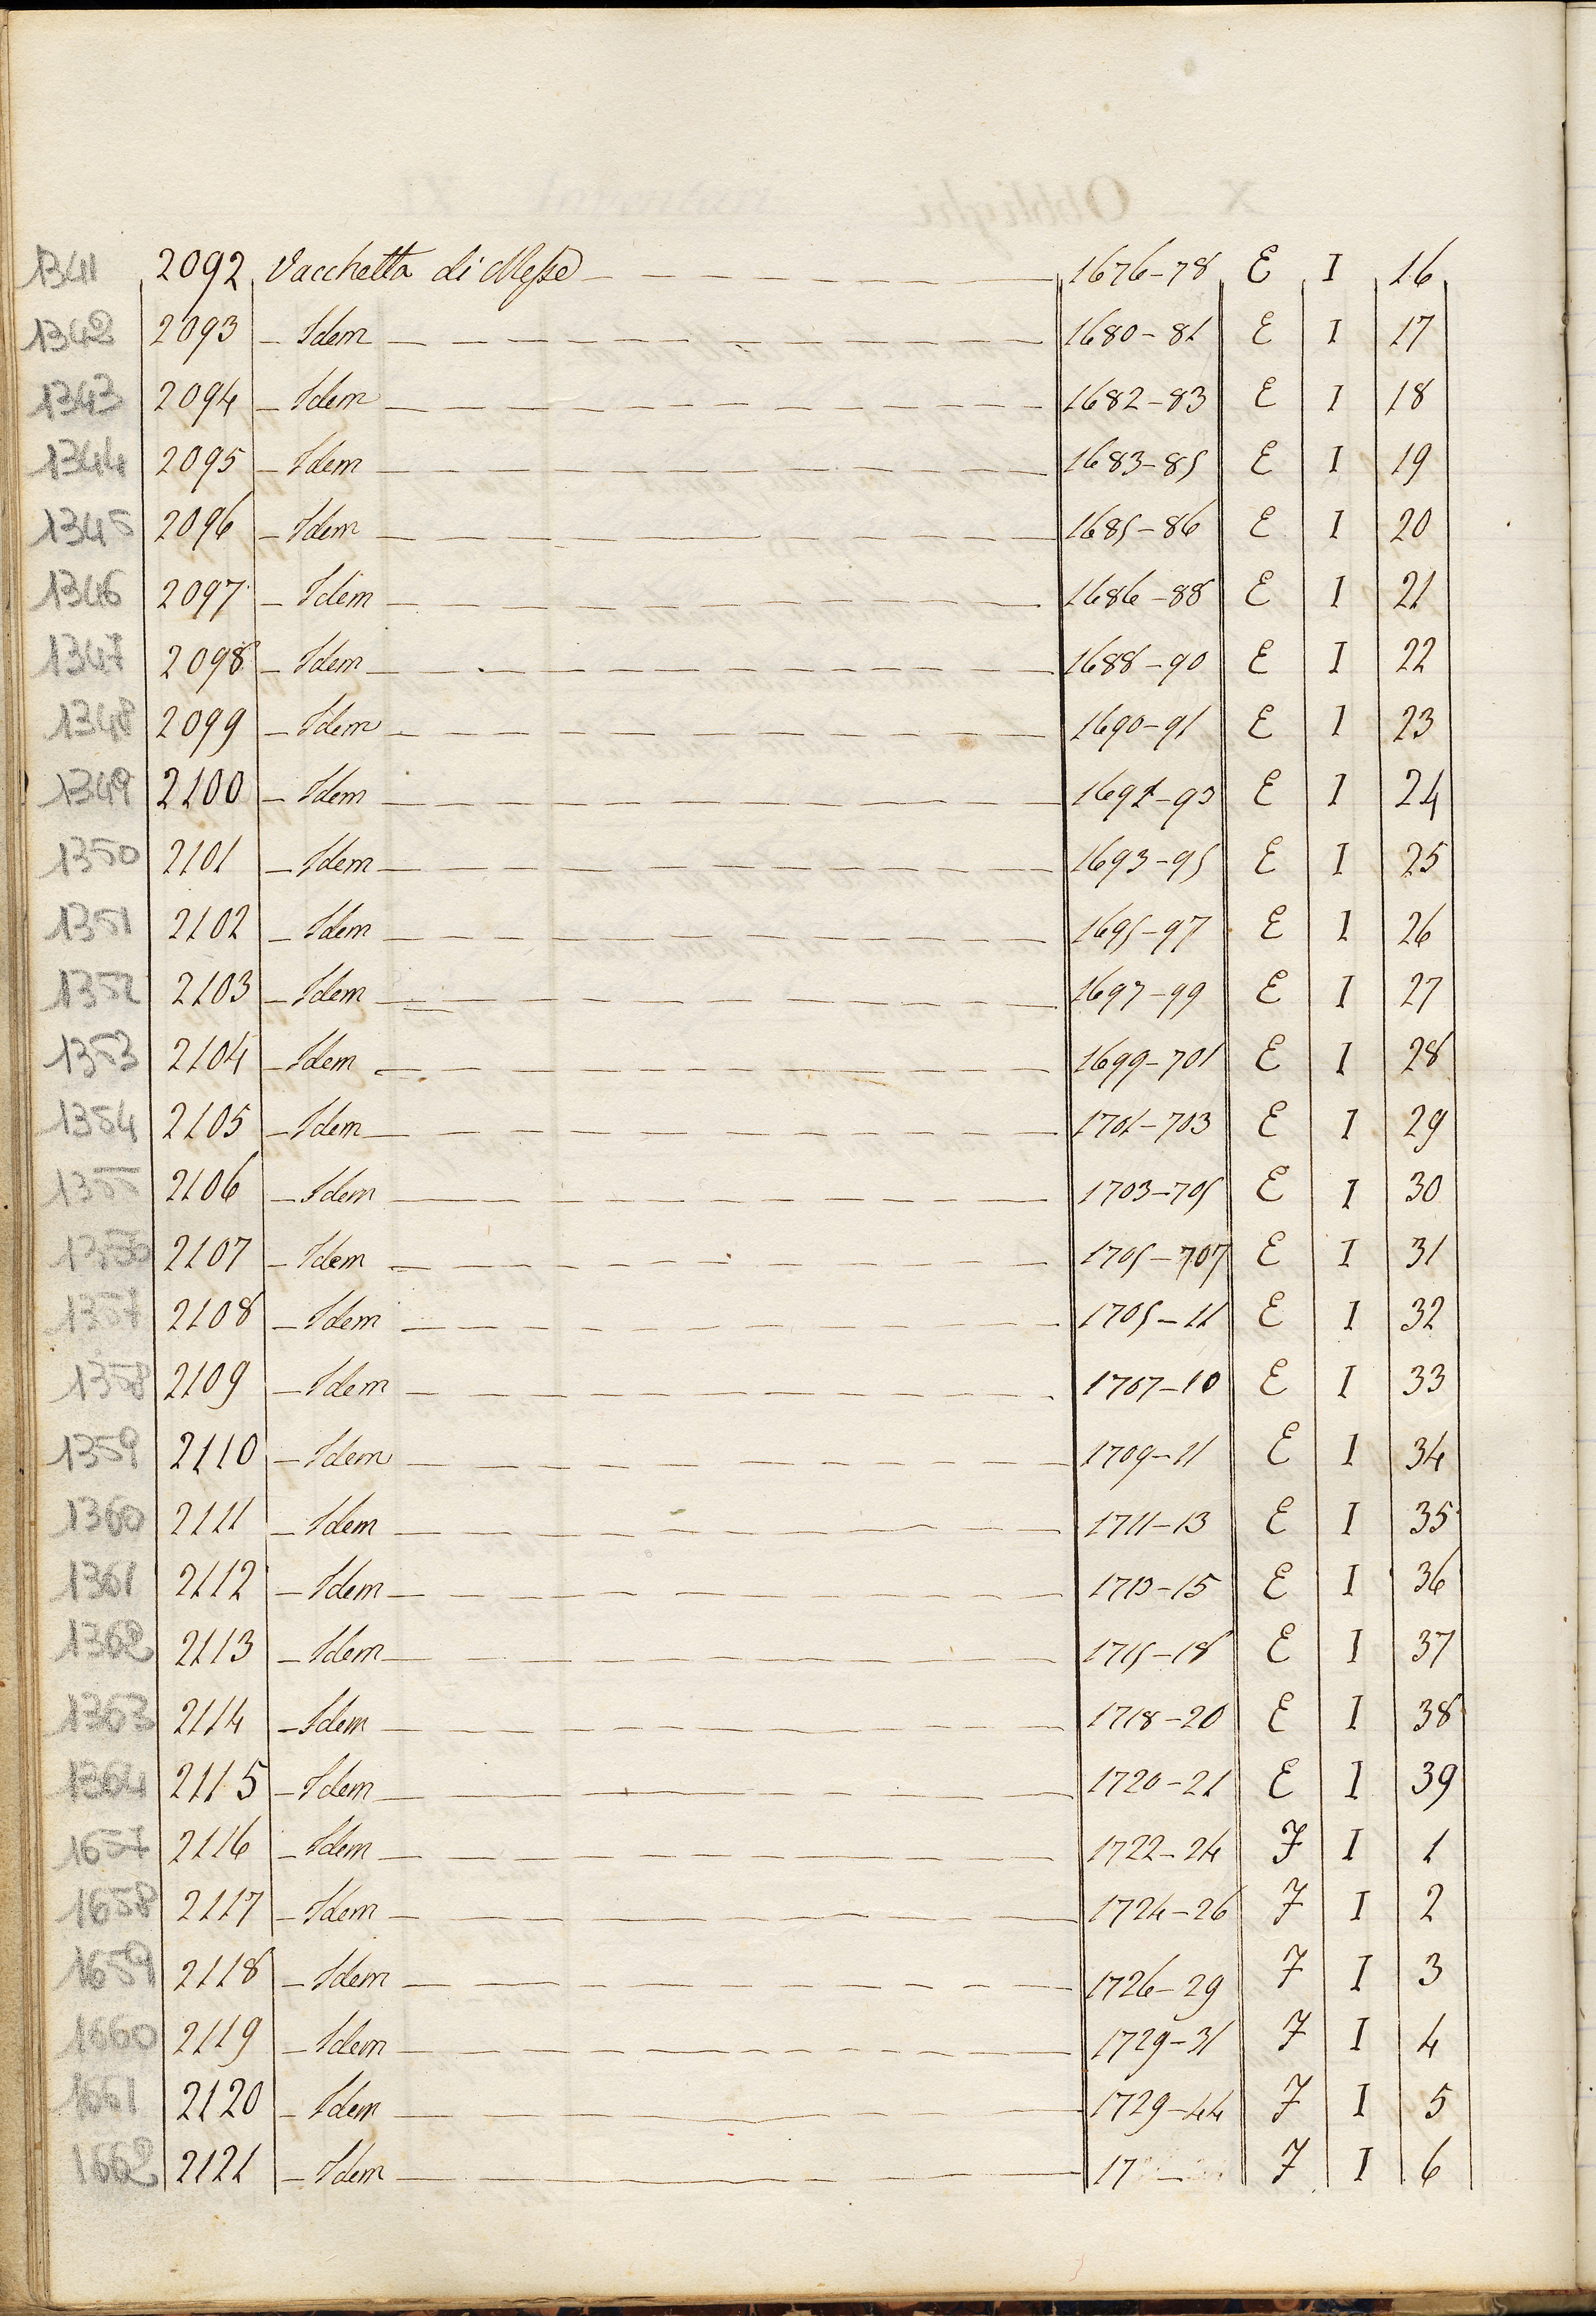 1341 2092 Vacchetta di Messe 1676-78 E I 16
1342 2093 - Idem 1680-81 E I 17
1343 2094 - Idem 1682-83 E I 18
1344 2095 - Idem 1683-85 E I 19
1345 2096 - Idem 1685-86 E I 20
1346 2097 - Idem 1686-88 E I 21
1347 2098 - Idem 1688-90 E I 22
1348 2099 - Idem 1690-91 E I 23
1349 2100 - Idem 1691-93 E I 24
1350 2101 - Idem 1693-95 E I 25
1351 2102 - Idem 1695-97 E I 26
1352 2103 - Idem 1697-99 E I 27
1353 2104 - Idem 1699-701 E I 28
1354 2105 - Idem 1701-703 E I 29
1355 2106 - Idem 1703-705 E I 30
1356 2107 - Idem 1705-707 E I 31
1357 2108 - Idem 1705-11 E I 32
1358 2109 - Idem 1707-10 E I 33
1359 2110 - Idem 1709-11 E I 34
1360 2111 - Idem 1711-13 E I 35
1361 2112 - Idem 1713-15 E I 36
1362 2113 - Idem 1715-18 E I 37
1363 2114 - Idem 1718-20 E I 38
1364 2115 - Idem 1720-21 E I 39
1657 2116 - Idem 1722-24 F I 1
1658 2117 - Idem 1724-26 F I 2
1659 2118 - Idem 1726-29 F I 3
1660 2119 - Idem 1729-31 F I 4
1661 2120 - Idem 1729-44 F I 5
1662 2121 - Idem 17 - F I 6